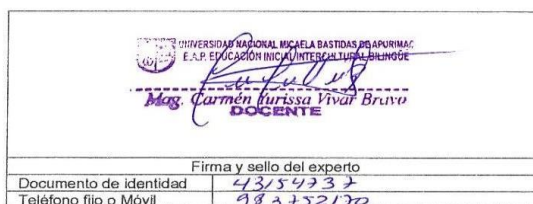 UNIVERSIDAD NACIONAL MICAELA BASTIDAS DE APURIMAC
E.A.P. EDUCACIÓN INICIAL INTERCULTURAL BILINGÜE
Mag. Carmén Yurissa Vivar Bravo
DOCENTE
Firma y sello del experto
Documento de identidad 43154737
Teléfono fijo o Móvil 983752170